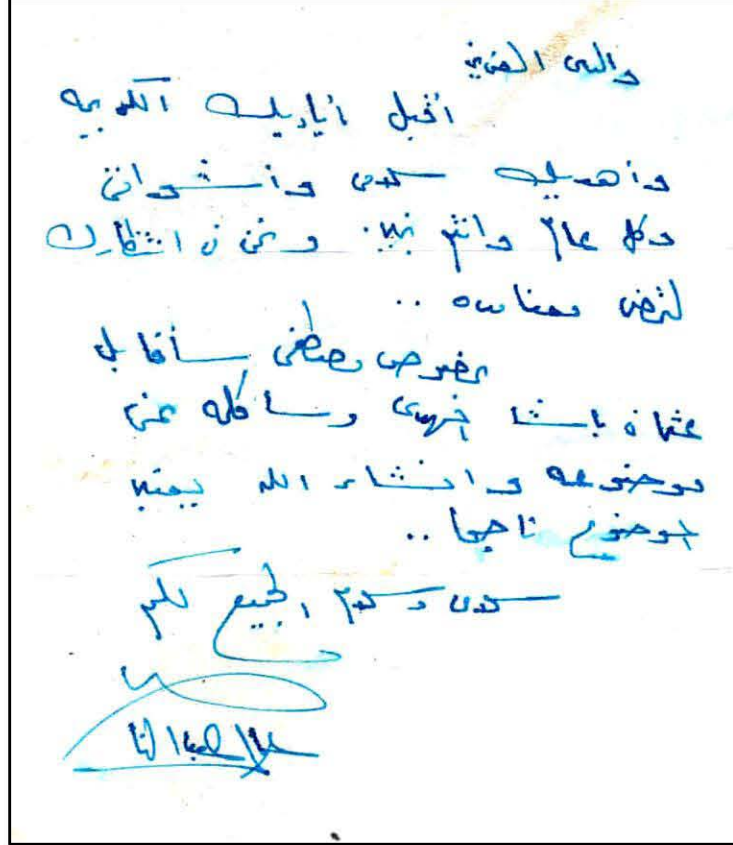 والدي العزيز
اقبل أياديك الكريمة
وأهديك سلامي وأشواقي
وكل عام وانتم بخير. ونحن في انتظارك
لغرض ..
بخصوص مصطفى سأقابل
عثمان باشا وسأكلمه عن
موضوعه وانشاء الله يعتبر
الموضوع ناجحا ..
سلامي وسلام الجميع لكم